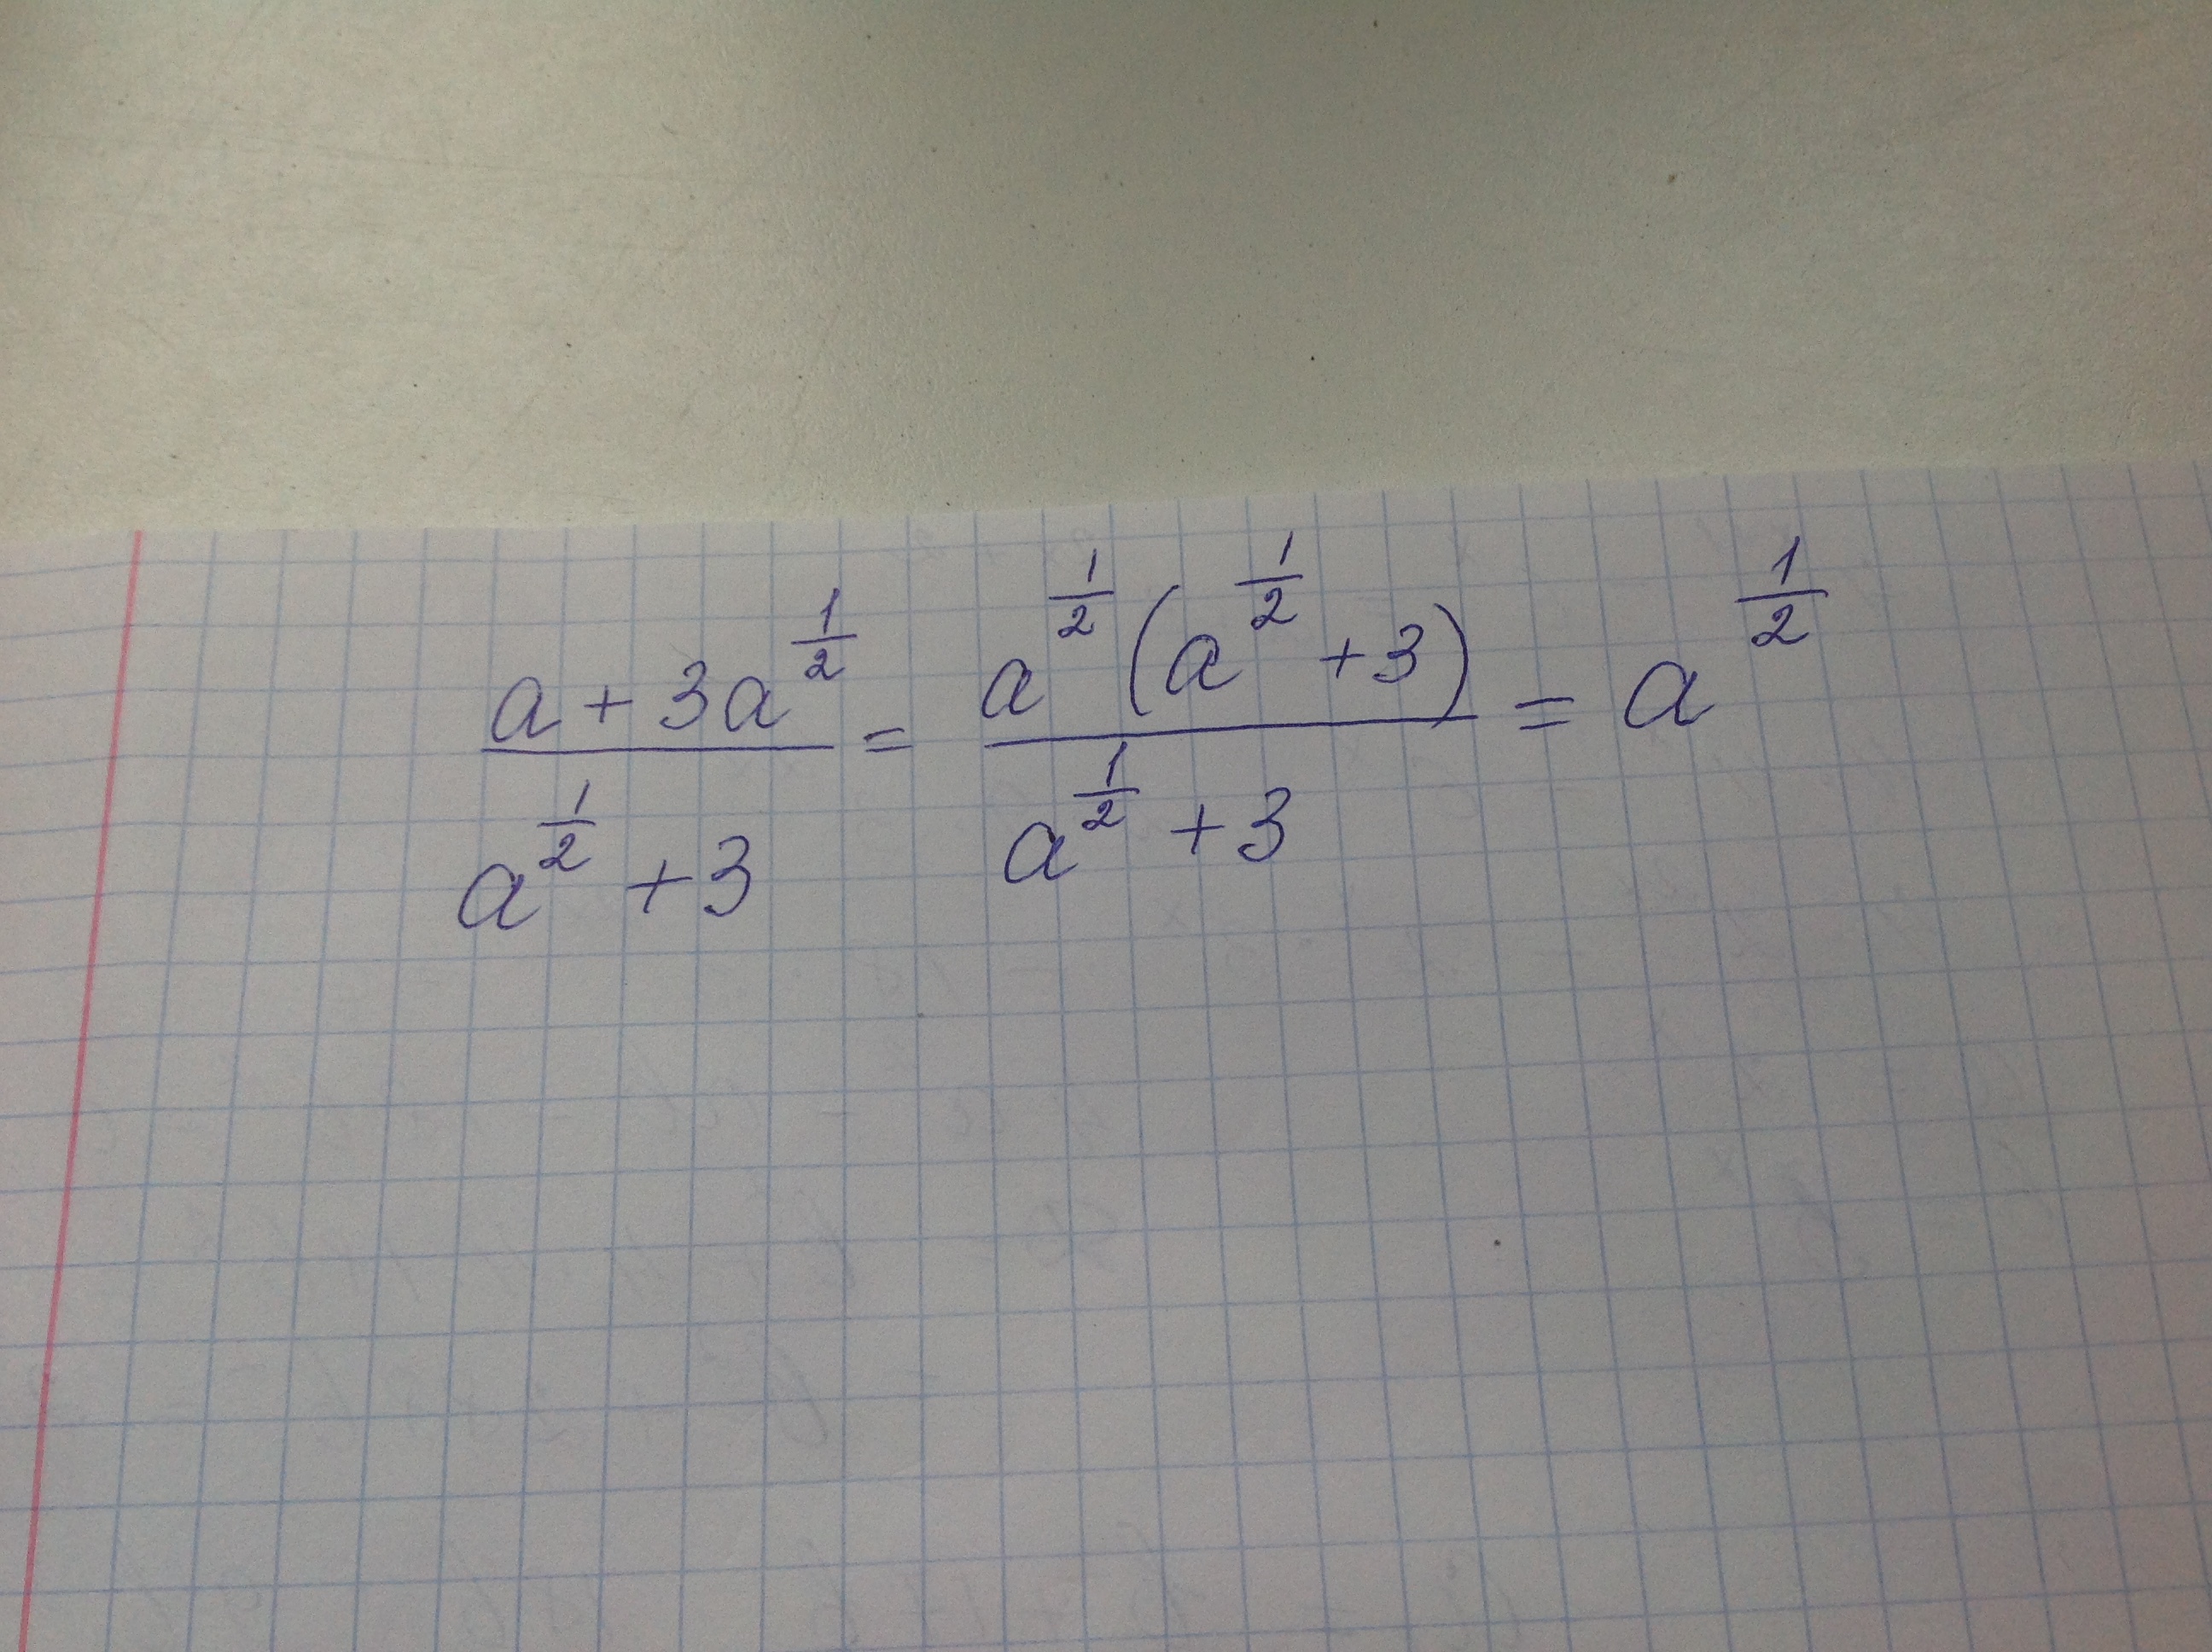 \frac{a+3a^{\frac{1}{2}}}{a^{\frac{1}{2}}+3} = \frac{a^{\frac{1}{2}}(a^{\frac{1}{2}}+3)}{a^{\frac{1}{2}}+3} = a^{\frac{1}{2}}